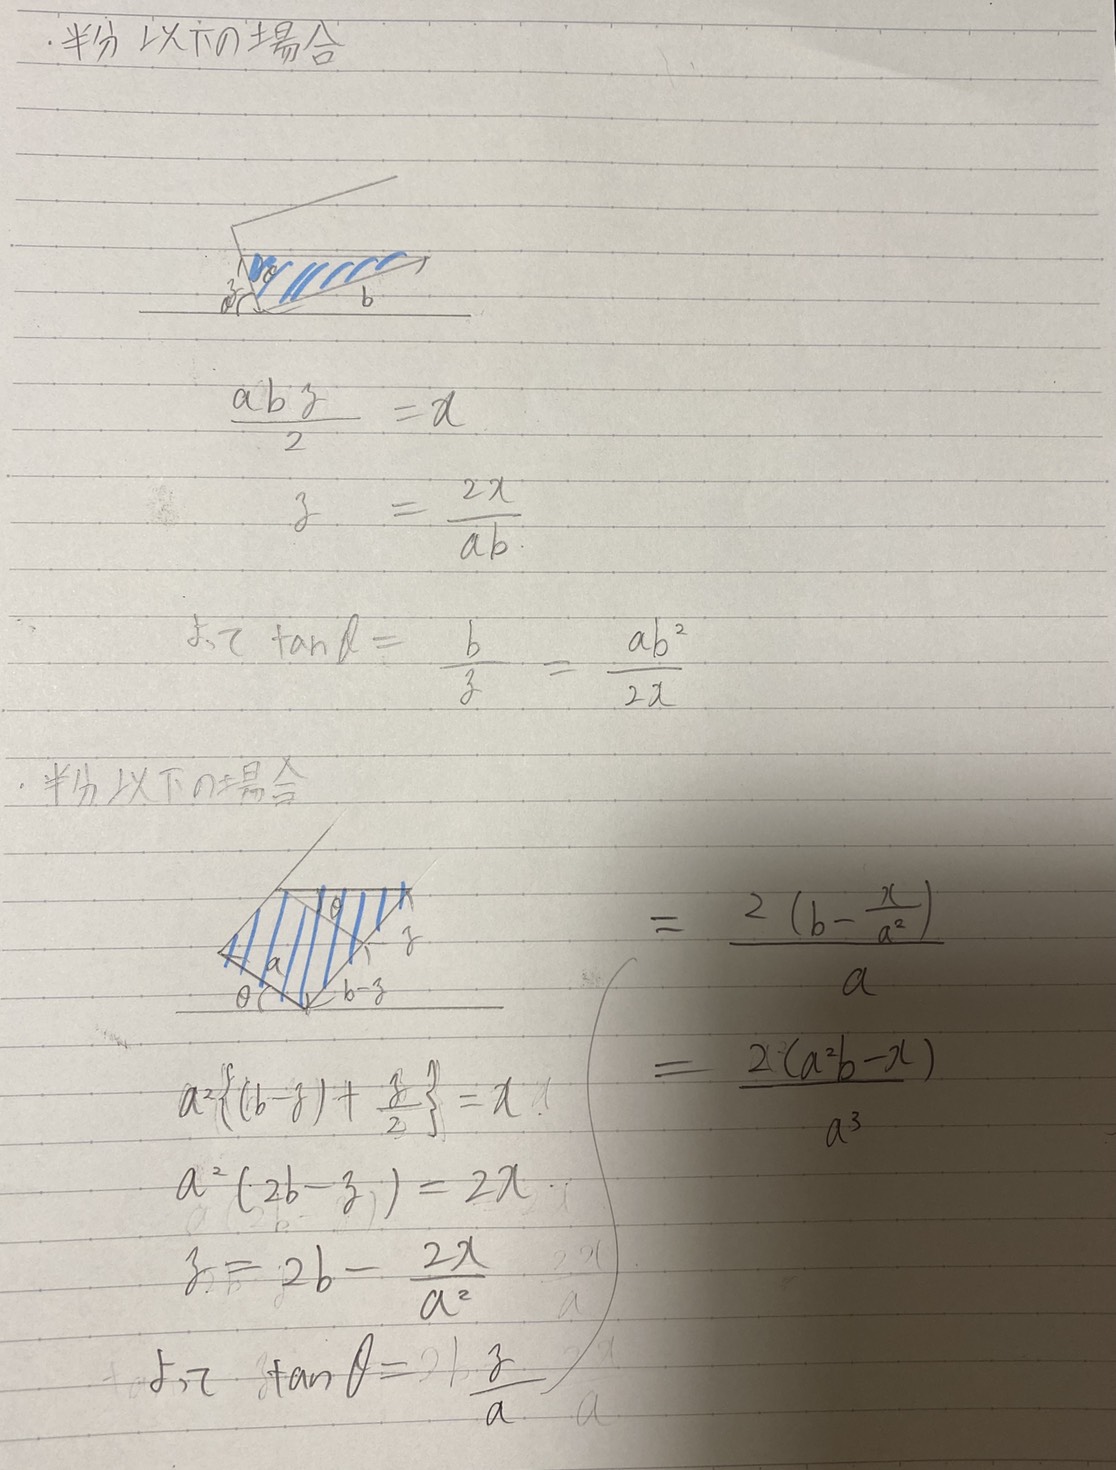 ・半分以下の場合
z
θ
θ
b
abz/2 = x
z = 2x/ab
よって tanθ = b/z = ab²/2x
・半分以下の場合
θ
z
a
θ
b-z
a²{(b-z)+z/2} = x
a²(2b-z) = 2x
z = 2b - 2x/a²
よって tanθ = z/a
= 2(b - x/a²)/a
= 2(a²b-x)/a³